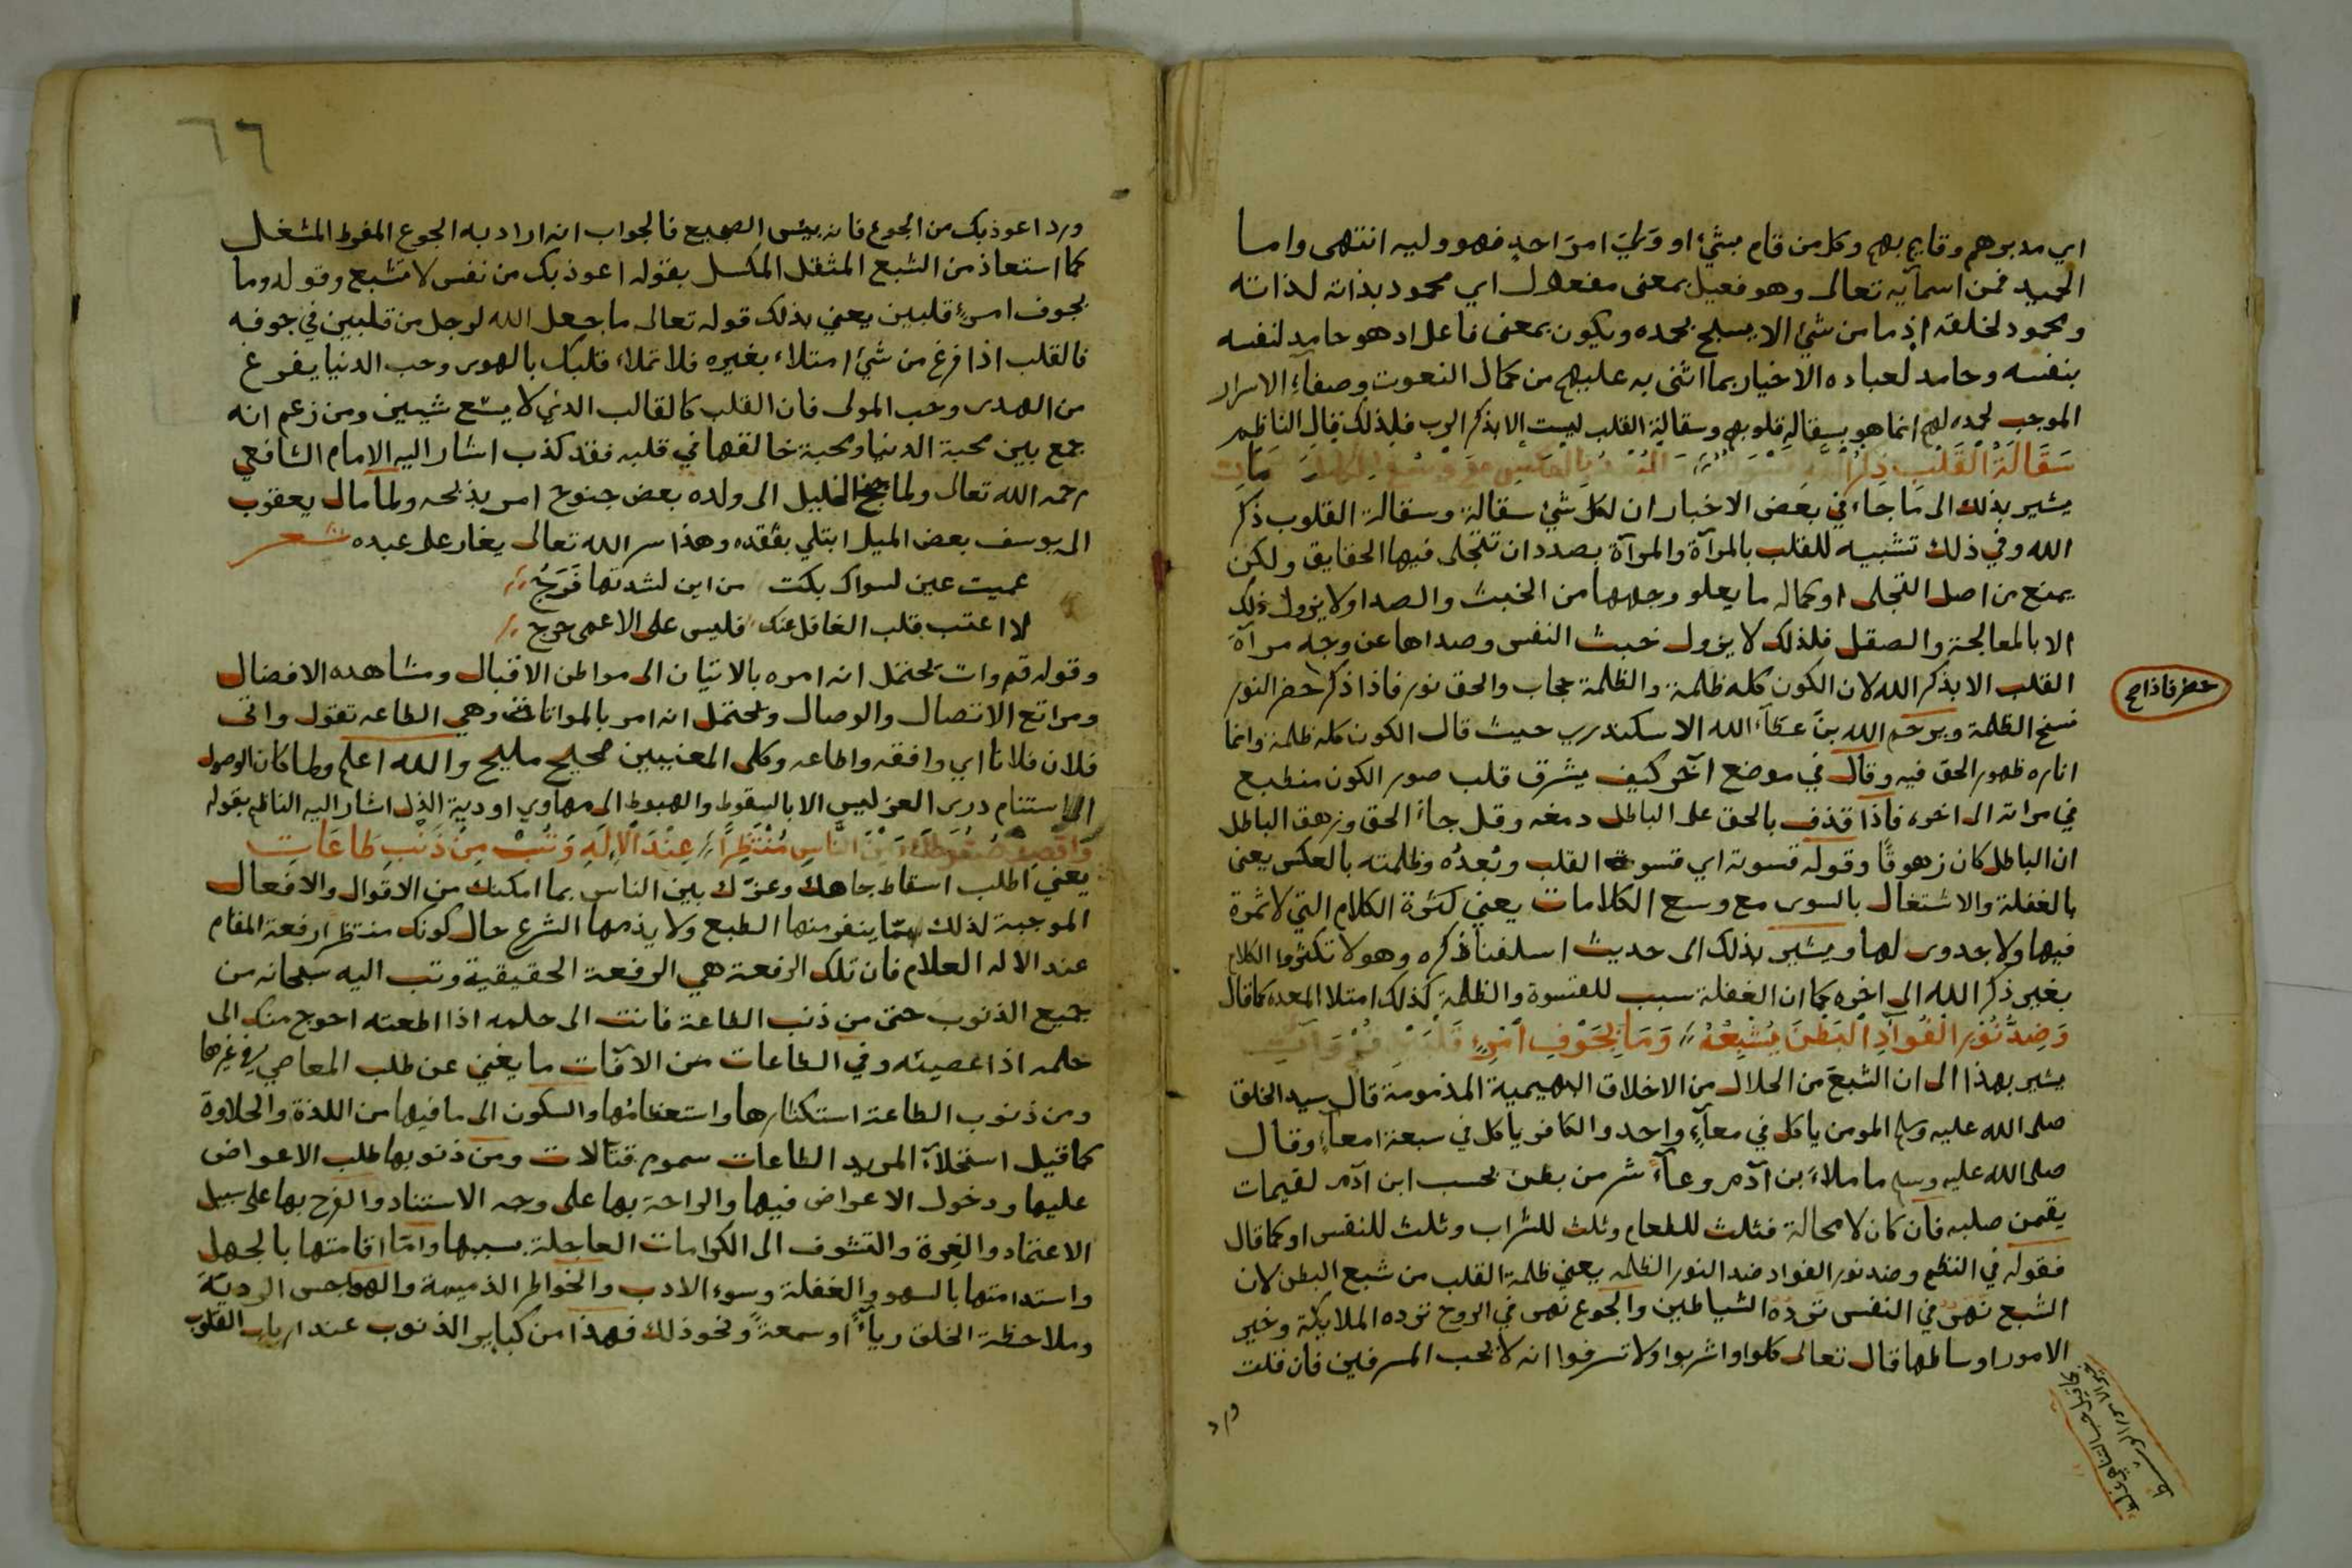 اي مدبرهم وقايم بهم وكل من قام بشئ او وَلِيَ امرَ احدٍ فهو وليه انتهى واما
الحميد فمن اسمآيه تعالى وهو فعيل بمعنى مفعول اي محمود بذاته لذاته
ومحمود لخلقه اذ ما من شئ الا يسبح بحمده ويكون بمعنى فاعل اد هو حامد لنفسه
بنفسه وحامد لعباده الاخيار بما اثنى به عليهم من كمال النعوت وصفآءِ الاسرار
الموجب لحمده لهم انما هو بسقالة قلوبهم وسقالة القلب ليست الا بذكر الرب فلذلك قال الناظم
سَقَالَةُ القَلْبِ ذِكْرُ الله
يشير بذلك الى ما جاء في بعض الاخبار ان لكل شئ سقالة وسقالة القلوب ذكر
الله وفي ذلك تشبيه للقلب بالمرآة والمرآة بصدد ان تتجلى فيها الحقايق ولكن
يمنع من اصل التجلى او كماله ما يعلو وجهها من الخبث والصدا ولا يزول ذلك
الا بالمعالجة والصقل فلذلك لا يزول خبث النفس وصداها عن وجه مرآة
القلب الا بذكر الله لان الكون كله ظلمة والظلمة حجاب والحق نور فاذا ذكر حضر النور
حضر فاذا صح
نسخ الظلمة ويرحم الله بنَ عطآء الله الاسكندري حيث قال الكون كله ظلمة وانما
اناره ظهور الحق فيه وقال في موضع آخر كيف يشرق قلب صور الكون منطبع
في مراته الى اخره فاذا قذف بالحق على الباطل دمغه وقل جآء الحق وزهق الباطل
ان الباطل كان زهوقًا وقوله قسوته اي قسوة القلب وبُعدُه وظلمته بالعكس يعني
بالغفلة والاشتغال بالسوى مع وسع الكلامات يعني كثرة الكلام التي لا ثمرة
فيها ولا جدوى لها ويشير بذلك الى حديث اسلفنا ذكره وهو لا تكثروا الكلام
بغير ذكر الله الى اخره كما ان الغفلة سبب للقسوة والظلمة كذلك امتلا المعده كما قال
وَضِدُّ نُوْرِ الفُوَادِ البَطْنَ يُشْبِعُهُ وَمَا بِجَوْفِ امْرِءٍ قَلْبَيْنِ قُمْ وَآتِ
يشير بهذا الى ان الشبعَ من الحلال من الاخلاق البهيمية المذمومة قال سيد الخلق
صلى الله عليه وسلم المومن ياكل في معآءٍ واحد والكافر ياكل في سبعة امعآءٍ وقال
صلى الله عليه وسلم ما ملاء بن آدم وعآءً شر من بطن بحسب ابن آدم لقيمات
يقمن صلبه فان كان لا محالة فثلث للطعام وثلث للشراب وثلث للنفس او كما قال
فقوله في النظم وضد نور الفواد ضد النور الظلمه يعني ظلمة القلب من شبع البطن لان
الشبع نهر في النفس تَرِدُهُ الشياطين والجوع نهر في الروح ترده الملايكة وخير
الامور اوساطها قال تعالى كلوا واشربوا ولا تسرفوا انه لا يحب المسرفين فان قلت
ورد
ورد اعوذ بك من الجوع فانه بيئس الضجيع فالجواب انه اراد به الجوع المفرط المشغل
كما استعاذ من الشبع المثقل المكسل بقوله اعوذ بك من نفس لا تشبع وقوله وما
بجوف امرءٍ قلبين يعني بذلك قوله تعالى ما جعل الله لرجل من قلبين في جوفه
فالقلب اذا فرغ من شئ امتلاء بغيره فلا تملاء قلبك بالهوى وحب الدنيا يفرغ
من الهدى وحب المولى فان القلب كالقالب الذي لا يسع شيين ومن زعم انه
جمع بين محبة الدنيا ومحبة خالقها في قلبه فقد كذب اشار اليه الامام الشافعي
رحمه الله تعالى ولما جنح الخليل الى ولده بعض جنوح امر بذبحه ولما مال يعقوب
الى يوسف بعض الميل ابتلي بفقده وهذا سر الله تعالى يغار على عبده شعر
عميت عين لسواك بكت من اين لشدتها فَرَجُ
لا اعتب قلب الغافل عنك فليس على الاعمى حرج
وقوله قم وات يحتمل انه امره بالاتيان الى مواطن الاقبال ومشاهده الافضال
ومراتع الاتصال والوصال ويحتمل انه امر بالمواتاة وهي الطاعه تقول واتى
فلان فلانا اي وافقه واطاعه وكلى المعنيين صحيح مليح والله اعلم ولما كان الوصول
الى استنام درى العز ليس الا بالسقوط والهبوط الى مهاوي اودية الذل اشار اليه الناظم بقوله
بَيْنَ النَّاسِ مُنْتَظِرًا عِنْدَ الاِلَهِ وَتُبْ مِنْ ذَنْبِ طَاعَاتِ
يعني اطلب اسقاط جاهك وعزّك بين الناس بما امكنك من الاقوال والافعال
الموجبة لذلك مّما ينفر منها الطبع ولا يذمها الشرع حال كونك منتظر ارفعة المقام
عند الاله العلام فان تلك الرفعة هي الرفعة الحقيقية وتب اليه سبحانه من
جميع الذنوب حتى من ذنب الطاعة فانت الى حلمه اذا اطعته احوج منك الى
حلمه اذا عصيته وفي الطاعات من الآفات ما يغني عن طلب المعاصي في غيرها
ومن ذنوب الطاعة استكثارها واستعظامها والسكون الى ما فيها من اللذة والحلاوة
كما قيل استحلآء المريد الطاعات سموم قتالات ومن ذنوبها طلب الاعواض
عليها ودخول الاعواض فيها والراحة بها على وجه الاستناد والفرح بها على سبيل
الاعتماد والغِرة والتشوف الى الكرامات العاجلة بسببها وامّا اقامتها بالجهل
واستدامتها بالسهو والغفلة وسوء الادب والخواطر الذميمة والهواجس الرديّة
وملاحظة الخلق ريآءً او سمعةً ونحو ذلك فهذا من كباير الذنوب عند ارباب القلوب
٦٦